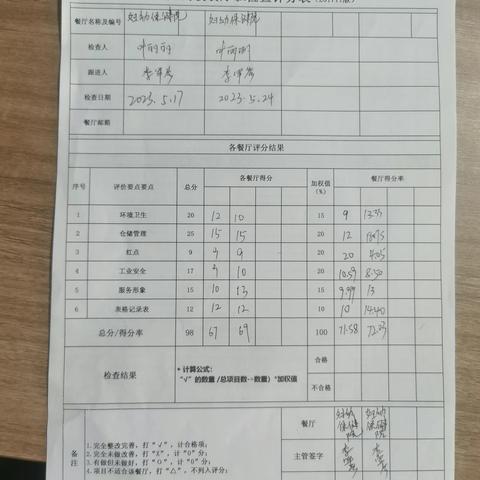 餐厅名称及编号 妇幼保健院 妇幼保健院
检查人 叶丽丽 叶丽丽
跟进人
检查日期 2023.5.17 2023.5.24
餐厅邮箱
各餐厅评分结果
序号 评价要点要点 总分 各餐厅得分 加权值(%) 餐厅得分率
1 环境卫生 20 12 10 15 9
2 仓储管理 25 15 15 20 12
3 红点 9 9 20
4 工业安全 17 10 20 10.59 8.50
5 服务形象 15 10 13 15 9.99 13
6 表格记录表 12 12 12 10 10 14.40
总分/得分率 98 67 69 100 71.58
检查结果
* 计算公式:
“√”的数量/总项目数-×数量)*加权值
合格
不合格
备注
1.完全整改完善，打“√”，计合格项;
2.完全未做改善，打“X”，计“0”分;
3.有做但未做好，打“O”，计“0”分;
4.项目不适合该餐厅，打“△”，不列入评分;
餐厅 妇幼保健院 妇幼保健院
主管签字